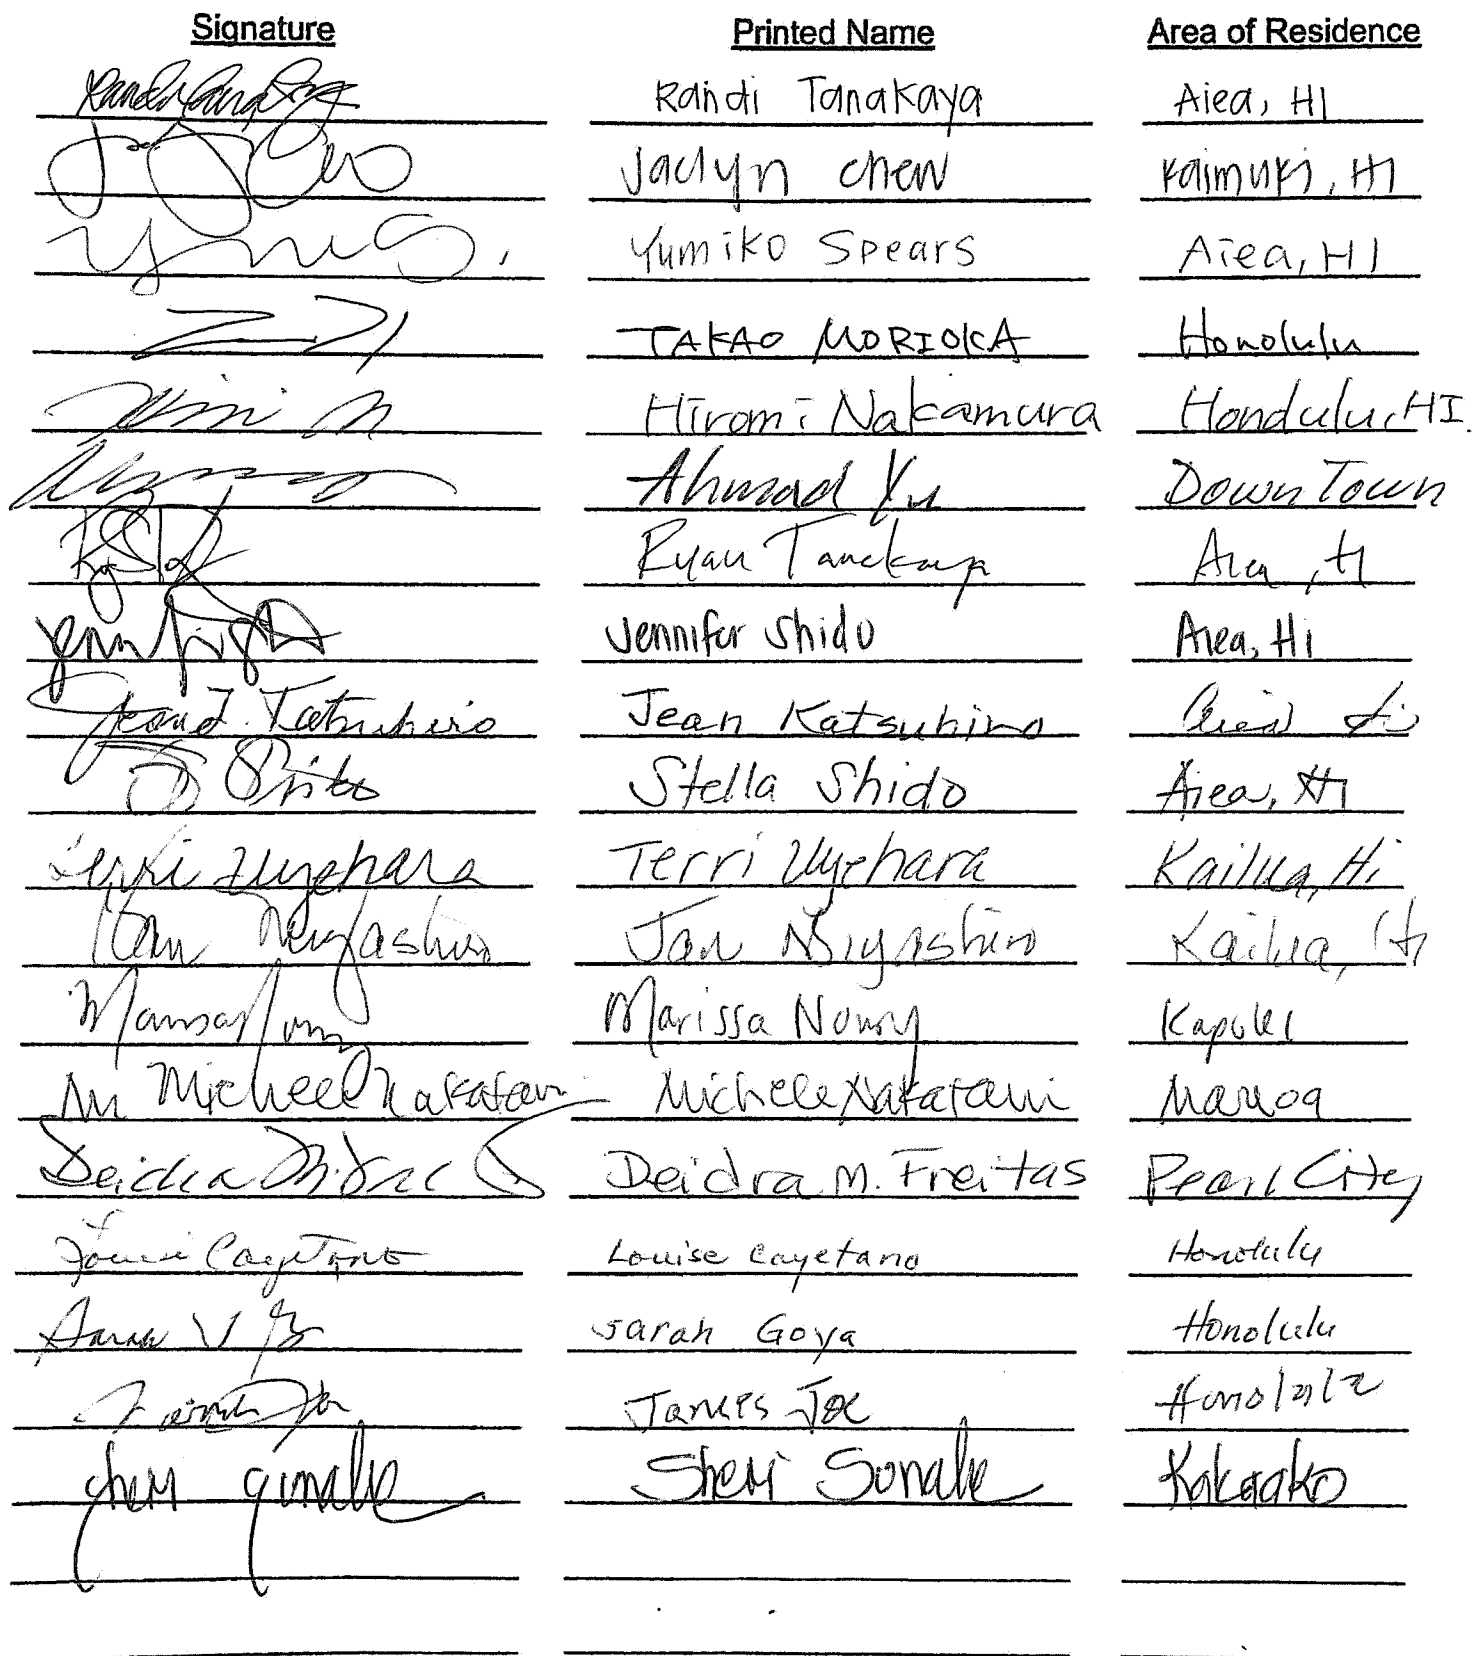 Signature Printed Name Area of Residence
Randi Tanakaya Aiea, HI
Jaclyn Chew Kaimuki, HI
Yumiko Spears Aiea, HI
TAKAO MORIOKA Honolulu
Hiromi Nakamura Honolulu, HI.
Ahmad Yu DownTown
Ryan Tanakaya Aiea, HI
Jennifer Shido Aiea, Hi
Jean Katsuhiro Jean Katsuhiro Aiea Hi
Stella Shido Aiea, HI
Terri Uyehara Terri Uyehara Kailua, Hi
Jan Miyashiro Jan Miyashiro Kailua, Hi
Marissa Kapolei
Michele Nakatani Michele Nakatani Manoa
Deidra Deidra M. Freitas Pearl City
Louise Cayetano Louise Cayetano Honolulu
Sarah Sarah Goya Honolulu
Joe Honolulu
Sheri Sonake Sheri Sonake Kakaako